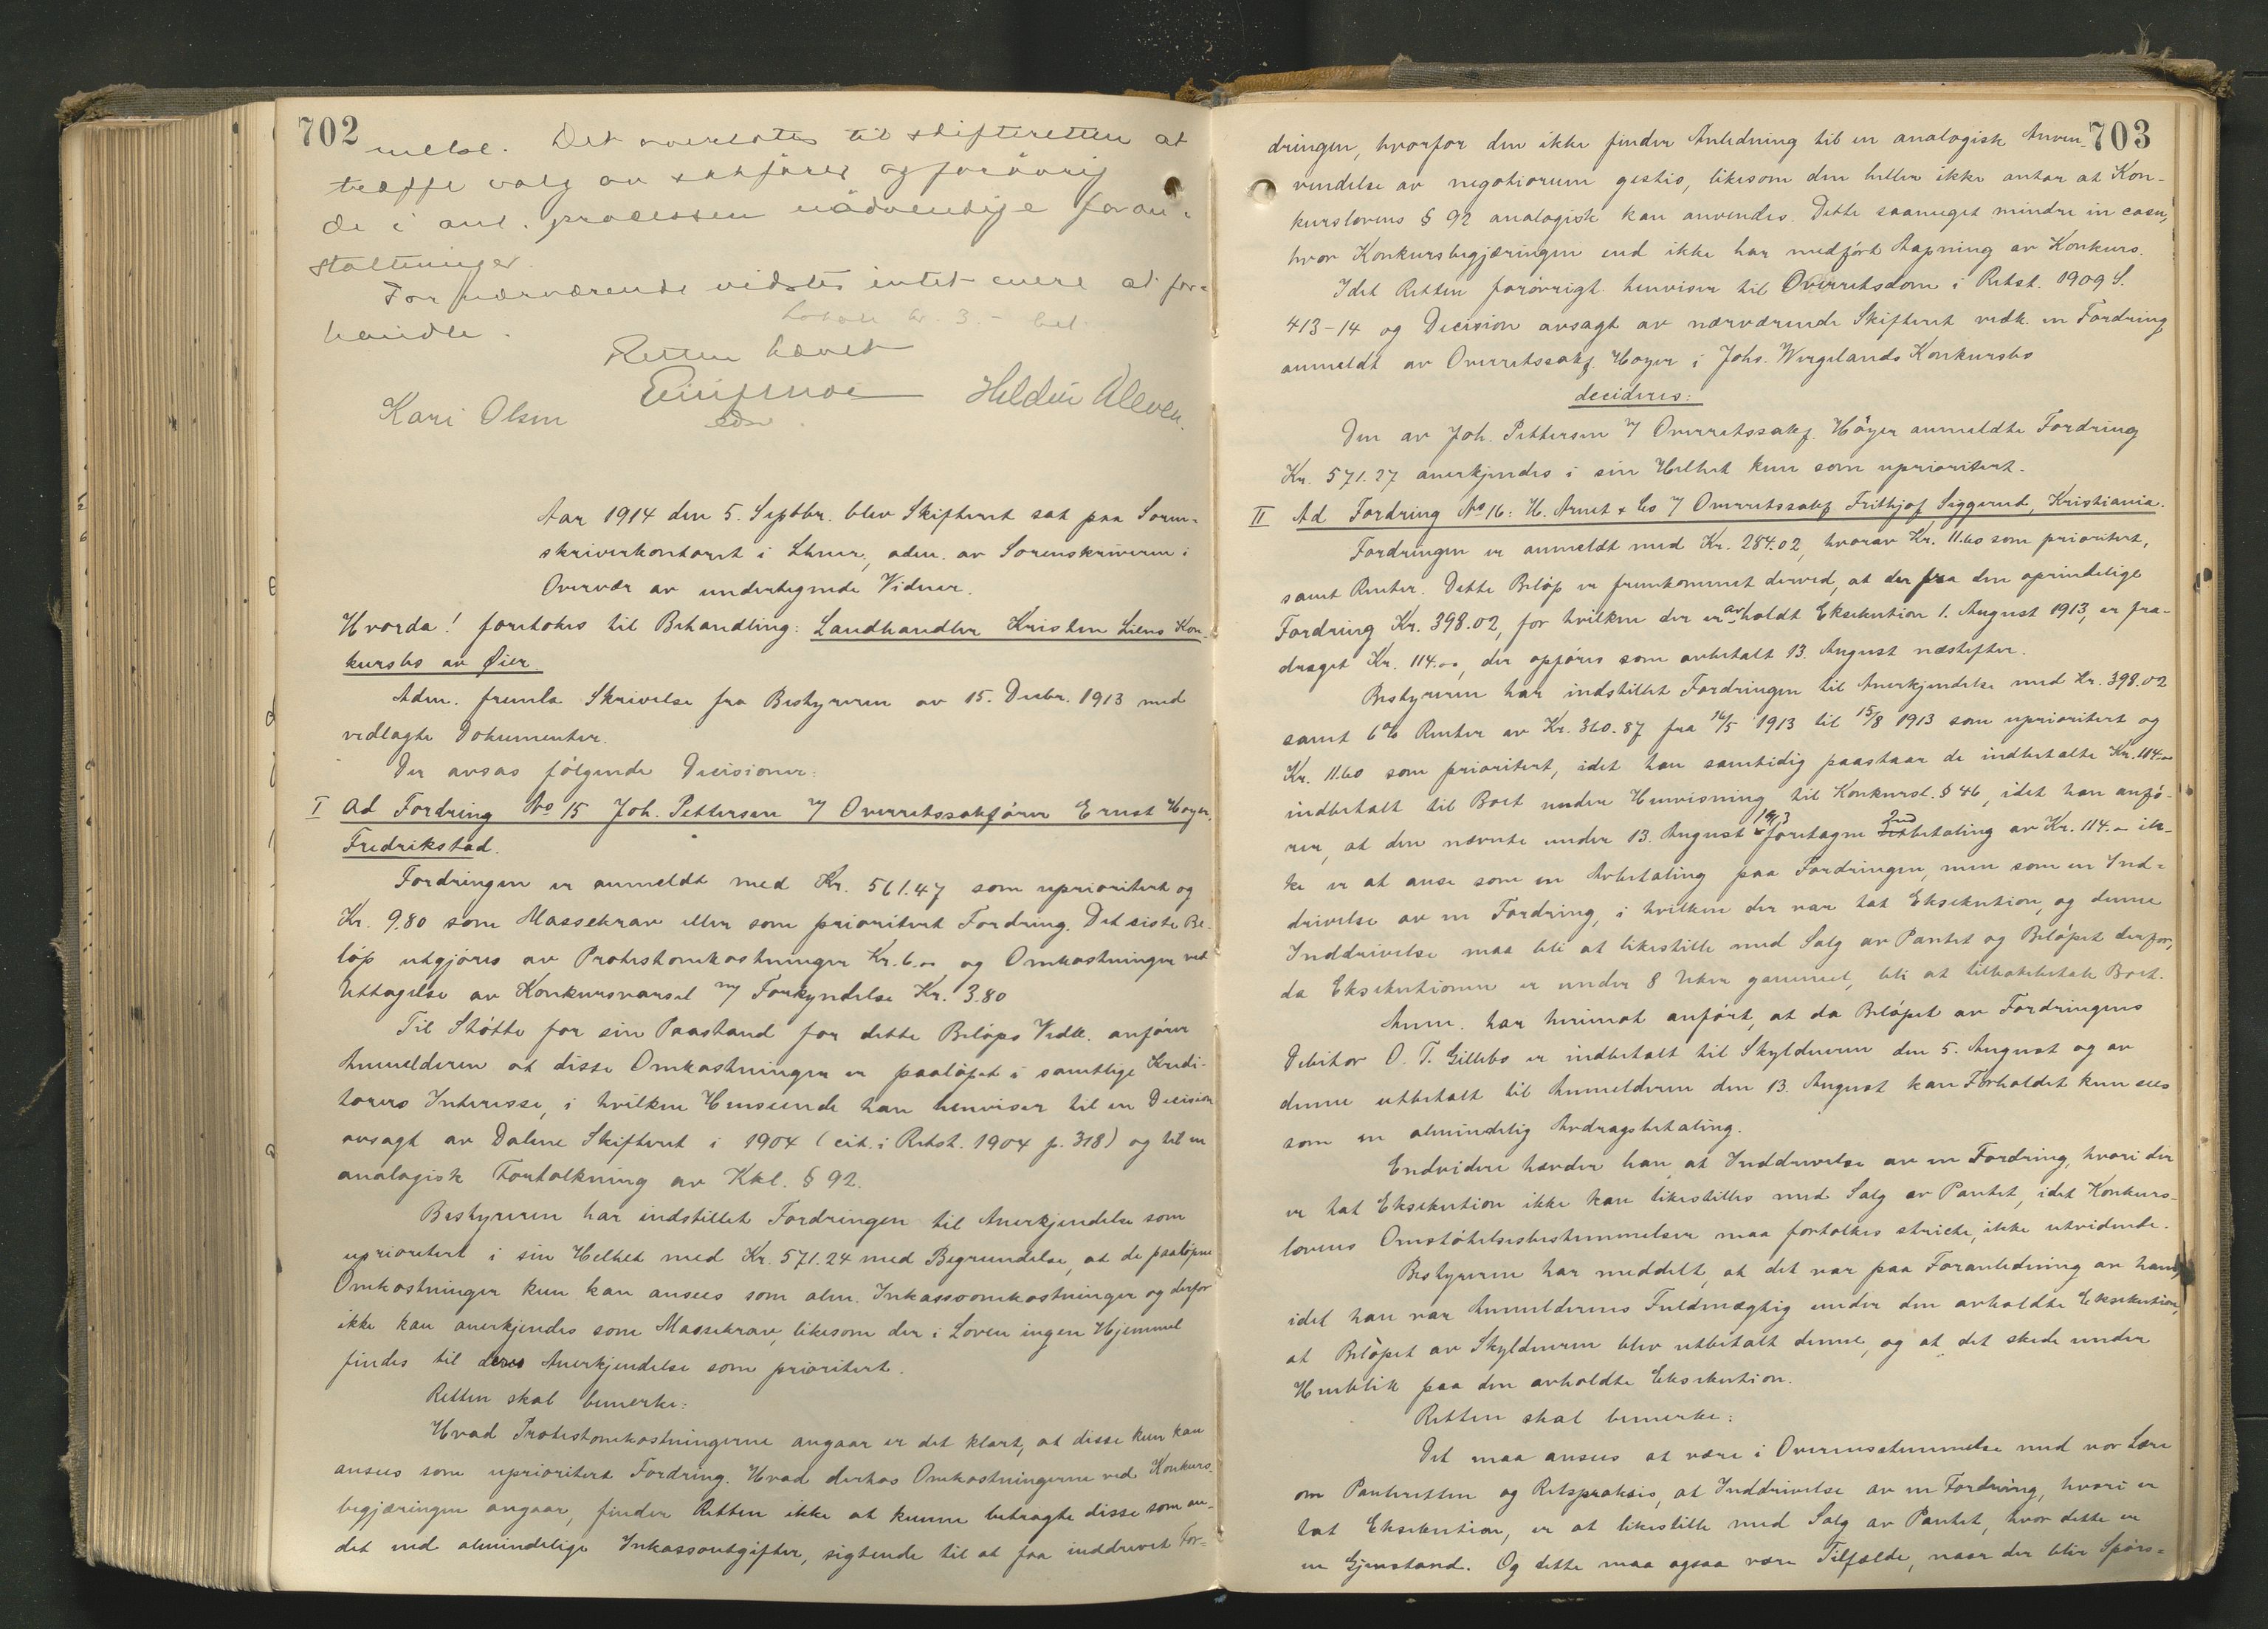 702
nelse. Det overlates til skifteretten at
træffe valg av sakfører og forøvrig
de i anl. processen nödvendige foran-
staltninger.
For nærværende vidstes intet mere at for-
handle.
bet.
Retten hævet
Kari Olsen
Aar 1914 den 5. Septbr. blev Skifteret sat paa Soren-
skriverkontoret i Lhmr, adm. av Sorenskriveren i
Overvær av undertegnede Vidner.
Hvorda! foretokes til Behandling: Landhandler Kristen Liens Kon-
kursbo av Øier.
Adm. fremla Skrivelse fra Bestyreren av 15. Decbr. 1913 med
vedlagte Dokumenter.
Der avsas følgende Decisioner:
I Ad Fordring No 15 Joh. Pettersen v/ Overretssakfører Ernst Høyer,
Fredrikstad.
Fordringen er anmeldt med Kr. 561.47 som uprioritert og
Kr. 9.80 som Massekrav eller som prioritert Fordring. Det siste Be-
løp utgjøres av Protestomkostninger Kr. 6.00 og Omkostninger ved
Uttagelse av Konkursvarsel m/ Forkyndelse Kr. 3.80
Til Støtte for sin Paastand for dette Beløps Vedk. anfører
Anmelderen at disse Omkostninger er paaløpet i samtlige Kredi-
torers Interesse, i hvilken Henseende han henviser til en Decision
avsagt av Dalene Skifteret i 1904 (cit. i Retst. 1904 p. 318) og til en
analogisk Fortolkning av Kkl. § 92.
Bestyreren har indstillet Fordringen til Anerkjendelse som
uprioritert i sin Helhet med Kr. 571.24 med Begrundelse, at de paaløpne
Omkostninger kun kan ansees som alm. Inkassoomkostninger og derfor
ikke kan anerkjendes som Massekrav, likesom der i Loven ingen Hjemmel
findes til deres Anerkjendelse som prioritert.
Retten skal bemerke:
Hvad Protestomkostningerne angaar er det klart, at disse kun kan
ansees som uprioritert Fordring. Hvad derhos Omkostningerne ved Konkurs-
begjæringen angaar, finder Retten ikke at kunne betragte disse som an-
det end almindelige Inkassoutgifter, sigtende til at faa inddrevet For-
703
dringen, hvorfor den ikke finder Anledning til en analogisk Anven-
vendelse av negotiorum gestio, likesom den heller ikke antar at Kon-
kurslovens § 92 analogisk kan anvendes. Dette saameget mindre in casu,
hvor Konkursbegjæringen end ikke har medført Aapning av Konkurs.
Idet Retten forøvrigt henviser til Overretsdom i Retst. 1909 S.
413-14 og Decision avsagt av nærværende Skifteret vedk. en Fordring
anmeldt av Overretssakf. Høyer i Johs. Wergelands Konkursbo
decideres:
Den av Joh. Pettersen v/ Overretssakf. Höyer anmeldte Fordring
Kr. 571.27 anerkjendes i sin Helhet kun som uprioritert.
II Ad Fordring No 16: H. Arnet & Co v/ Overretssakf Frithjof Siggerud, Kristiania.
Fordringen er anmeldt med Kr. 284.02, hvorav Kr. 11.60 som prioritert,
samt Renter. Dette Beløp er fremkommet derved, at der fra den oprindelige
Fordring Kr. 398.02, for hvilken der er avholdt Eksekution 1. August 1913, er fra-
draget Kr. 114.00, der opføres som avbetalt 13. August næstefter.
Bestyreren har indstillet Fordringen til Anerkjendelse med Kr. 398.02
samt 6 % Renter av Kr. 360.87 fra 16/5 1913 til 15/8 1913 som uprioritert og
Kr. 11.60 som prioritert, idet han samtidig paastaar de indbetalte Kr. 114.00
indbetalt til Boet under Henvisning til Konkursl. § 46, idet han anfø-
rer, at den nævnte under 13. August 1913 foretagne Indbetaling av Kr. 114.00 ik-
ke er at anse som en Avbetaling paa Fordringen, men som en Ind-
drivelse av en Fordring, i hvilken der var tat Eksekution, og denne
Inddrivelse maa bli at likestille med Salg av Pantet og Beløpet derfor,
da Eksekutionen er under 8 Uker gammel, bli at tilbakebetale Boet.
Anm. har herimot anført, at da Beløpet av Fordringens
Debitor O. T. Gillebo er indbetalt til Skyldneren den 5. August og av
denne utbetalt til Anmelderen den 13. August kan Forholdet kun sees
som en almindelig Avdragsbetaling.
Endvidere hævder han, at Inddrivelse av en Fordring, hvori der
er tat Eksekution ikke kan likestilles med Salg av Pantet, idet Konkurs-
lovens Omstøtelsesbestemmelser maa fortolkes stricte, ikke utvidende.
Bestyreren har meddelt, at det var paa Foranledning av ham,
idet han var Anmelderens Fuldmægtig under den avholdte Eksekution,
at Beløpet av Skyldneren blev utbetalt denne, og at det skede under
Henblik paa den avholdte Eksekution.
Retten skal bemerke:
Det maa ansees at være i Overensstemmelse med vor Lære
om Panteretten og Retspraksis, at Inddrivelse av en Fordring, hvori er
tat Eksekution, er at likestille med Salg av Pantet, hvor dette er
en Gjenstand. Og dette maa ogsaa være Tilfælde, naar der blir Spørs-